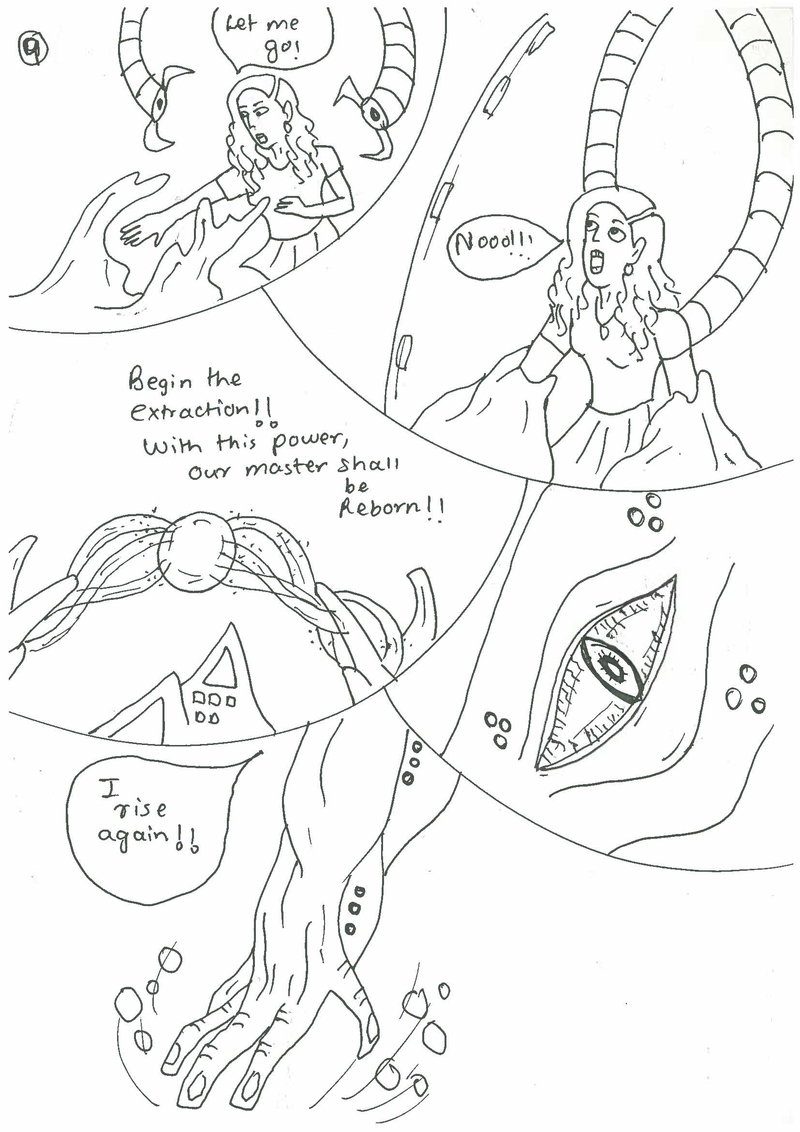 9
Let me
go!
Nooo!!!
Begin the
extraction!!
With this power,
our master shall
be
Reborn!!
I
rise
again!!